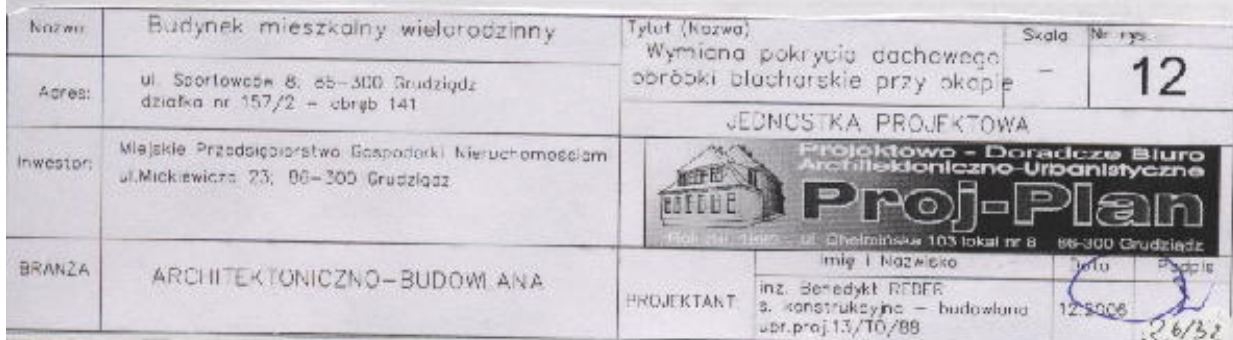 Nazwa:
Budynek mieszkalny wielorodzinny
Adres:
ul. Sportowców 8; 86-300 Grudziądz
działka nr 157/2 - obręb 141
Inwestor:
Miejskie Przedsiębiorstwo Gospodarki Nieruchomościami
ul.Mickiewicza 23; 86-300 Grudziądz
BRANŻA
ARCHITEKTONICZNO-BUDOWLANA
Tytuł (Nazwa)
Wymiana pokrycia dachowego
obróbki blacharskie przy okapie
Skala
-
Nr rys.
12
JEDNOSTKA PROJEKTOWA
Projektowo - Doradcze Biuro
Architektoniczno-Urbanistyczne
Proj-Plan
ul. Chełmińska 103 lokal nr 8 86-300 Grudziądz
PROJEKTANT:
Imię i Nazwisko
Data
Podpis
inż. Benedykt REDER
s. konstrukcyjno - budowlana
upr.proj.13/TO/88
12.2006
26/32